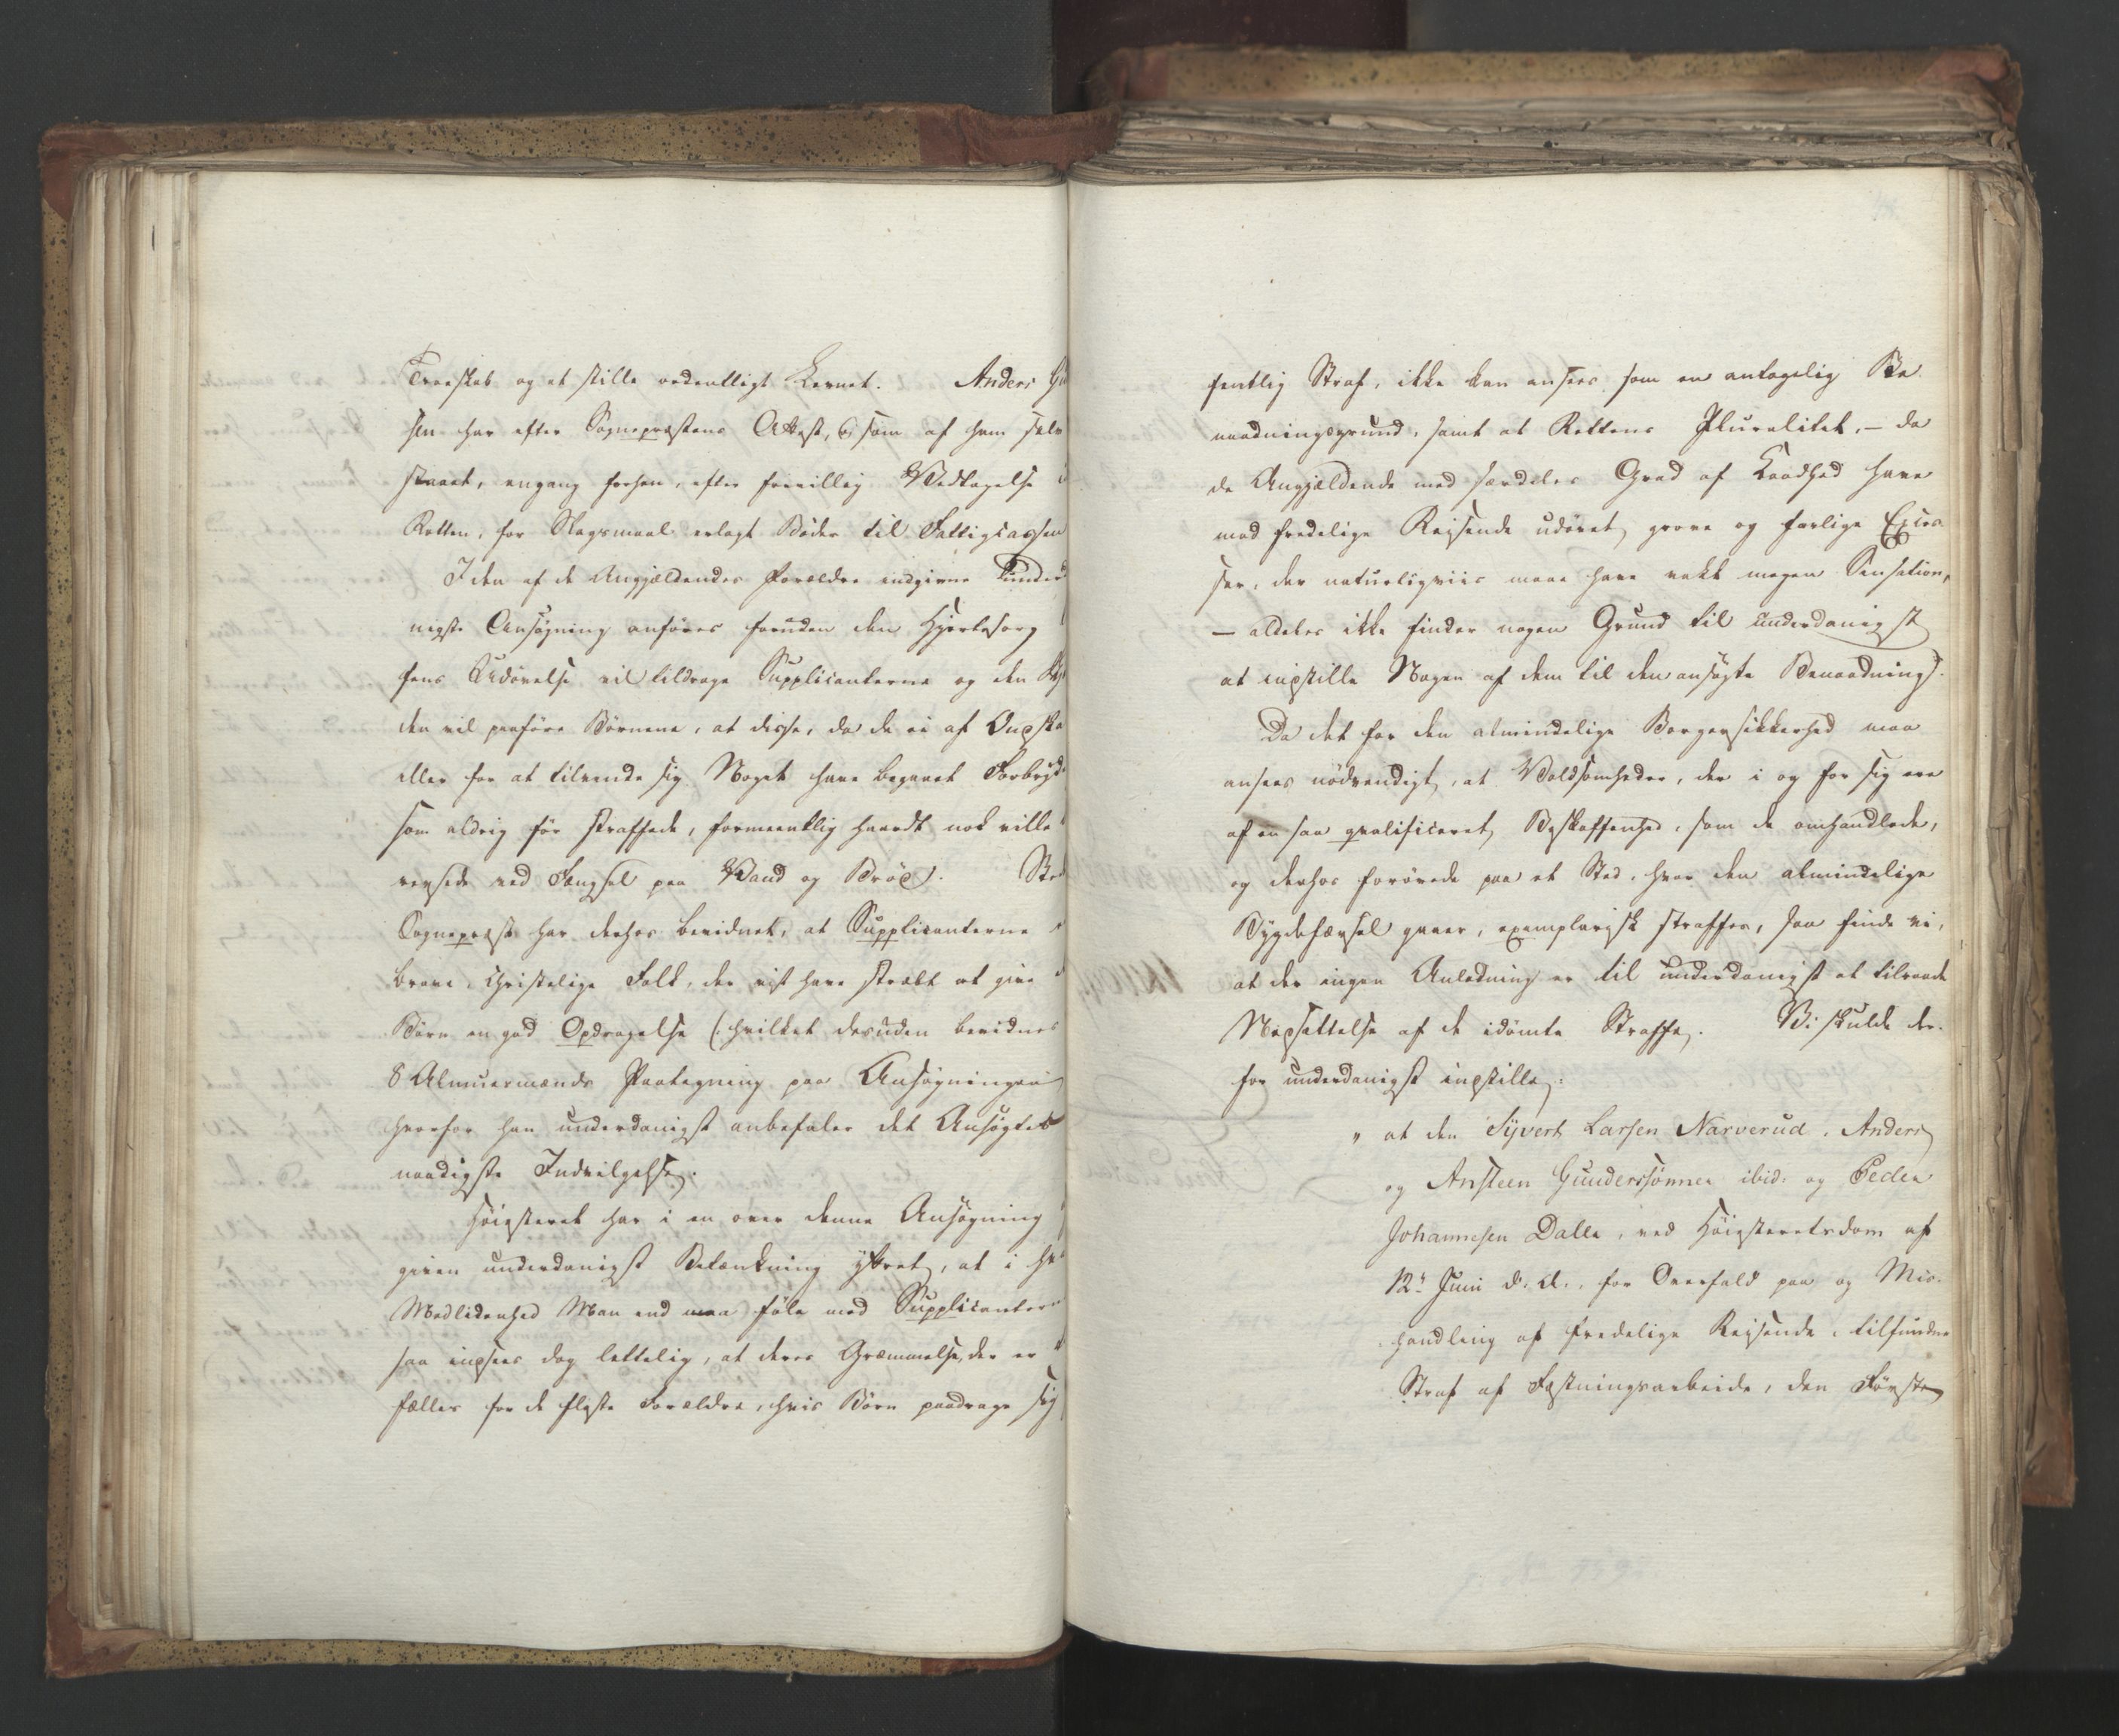 Troeskab og et stille ordentligt Levnet. Anders Gu
sen har efter Sognepræstens Attest, og som af ham selv
staaet, engang forhen, efter frivillig Vedtagelse i
Retten, for Slagsmaal erlagt Bøder til Fattigcassen
I den af de Angjældendes Forældre indgivne underd
nigste Ansøgning anføres foruden den Hjertesorg
fens Udøvelse vil tildrage Supplicanterne og den
den vil paaføre Børnene, at disse, da de ei af Ondska
eller for at tilvende sig Noget have begaaet Forbryd
som aldrig før straffede, formeentlig haardt nok ville
revsede ved Fængsel paa Vand og Brød. Sted
Sognepræst har derhos bevidnet, at Supplicanterne e
brave, christelige Folk, der vist have stræbt at give d
Børn en god Opdragelse (hvilket desuden bevidnes
8 Almuesmænds Paategning paa Ansøgningen
hvorfor han underdanigst anbefaler det Ansøgtes
naadigste Indvilgelse.
Høiesteret har i en over denne Ansøgning
given underdanigst Betænkning yttret, at i hv
Medlidenhed Man end maa føle med Supplicanter
saa indsees dog lettelig, at deres Græmmelse, der er
fælles for de fleste Forældre, hvis Børn paadrage sig
fentlig Straf, ikke kan ansees som en antagelig Be-
naadningsgrund, samt at Rettens Pluralitet, – da
de Angjældende med særdeles Grad af Raadhed have
mod fredelige Reisende udøvet grove og farlige Exces-
ser, der naturligviis maae have vakt megen Sensation,
– aldeles ikke finder nogen Grund til underdanigst
at indstille Nogen af dem til den ansøgte Benaadning.
Da det for den almindelige Borgersikkerhed maa
ansees nødvendigt, at Voldsomheder, der i og for sig ere
af en saa qvalificeret Beskaffenhed, som de omhandlede,
og derhos forøvede paa et Sted, hvor den almindelige
Bygdefærsel gaaer, exemplarisk straffes, saa finde vi,
at der ingen Anledning er til underdanigst at tilraade
Nedsættelse af de idømte Straffe. Vi skulde der-
for underdanigst indstille:
" at den Syvert Larsen Narverud, Anders
og Ansteen Gunderssønner ibid: og Peder
Johannesen Dalle, ved Høiesteretsdom af
12te Juni d: A:, for Overfald paa og Mis-
handling af fredelige Reisende, tilfundne
Straf af Fæstningsarbeide, den Første